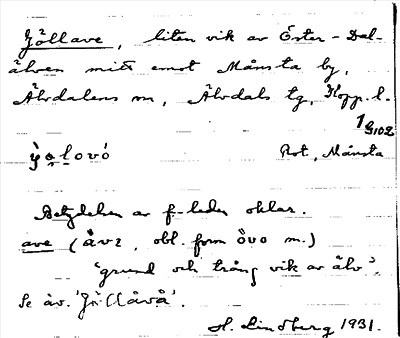 Jöllave, liten vik av Öster-Dal-
älven mitt emot Månsta by,
Älvdalens sn, Älvdals tg, Kopp. l.
Rot, Månsta
Betydelsen av f-leden oklar.
ave (åvɛ, obl. form òvo m.)
"grund och trång vik av älv".
Se äv. 'Jöllåvå'.
H. Lindberg 1931.